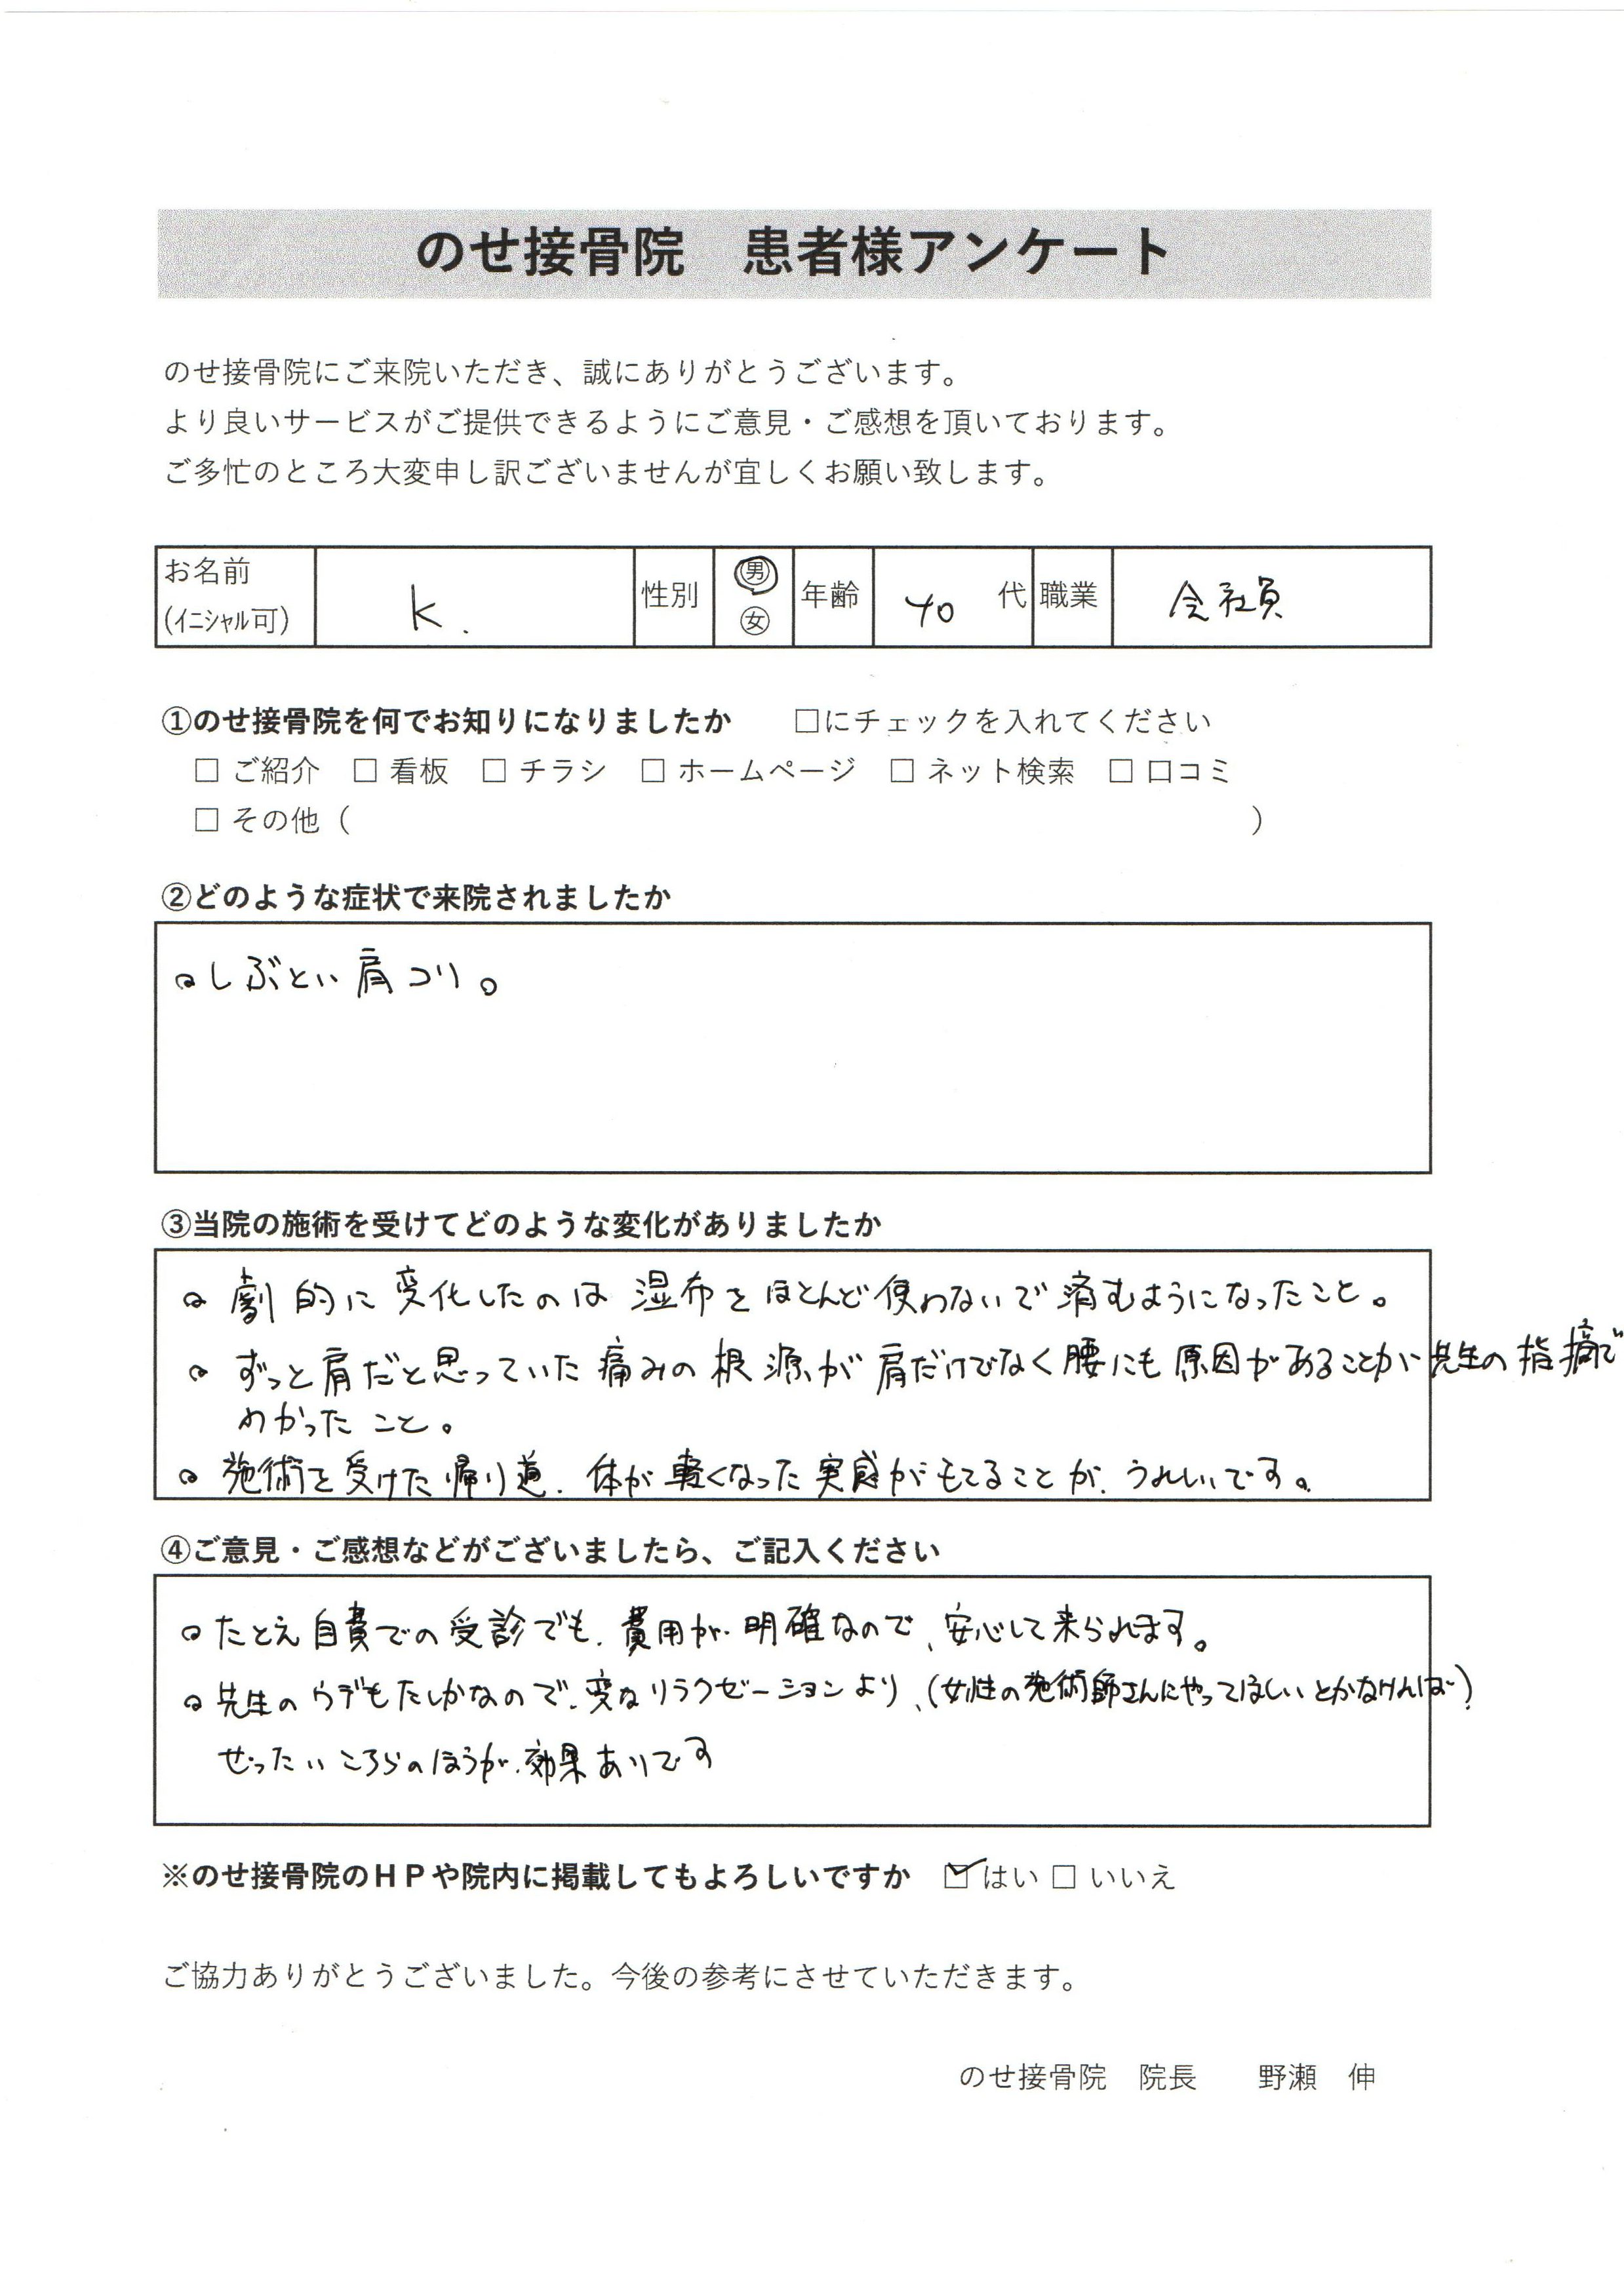 のせ接骨院　患者様アンケート
のせ接骨院にご来院いただき、誠にありがとうございます。
より良いサービスがご提供できるようにご意見・ご感想を頂いております。
ご多忙のところ大変申し訳ございませんが宜しくお願い致します。
お名前(イニシャル可) K. 性別 男 女 年齢 40 代 職業 会社員
①のせ接骨院を何でお知りになりましたか　□にチェックを入れてください
□ ご紹介 □ 看板 □ チラシ □ ホームページ □ ネット検索 □ 口コミ
□ その他（　　　　）
②どのような症状で来院されましたか
。しぶとい肩コリ。
③当院の施術を受けてどのような変化がありましたか
。劇的に変化したのは湿布をほとんど使わないで済むようになったこと。
。ずっと肩だと思っていた痛みの根源が肩だけでなく腰にも原因があることが先生の指摘で
わかったこと。
。施術を受けた帰り道、体が軽くなった実感がもてることが、うれしいです。
④ご意見・ご感想などがございましたら、ご記入ください
。たとえ自費での受診でも、費用が明確なので、安心して来られます。
。先生のウデもたしかなので、変なリラクゼーションより、(女性の施術師さんにやってほしいとかなければ)
ぜったいこちらのほうが、効果ありです
※のせ接骨院のＨＰや院内に掲載してもよろしいですか　☑はい □ いいえ
ご協力ありがとうございました。今後の参考にさせていただきます。
のせ接骨院　院長　　野瀬　伸